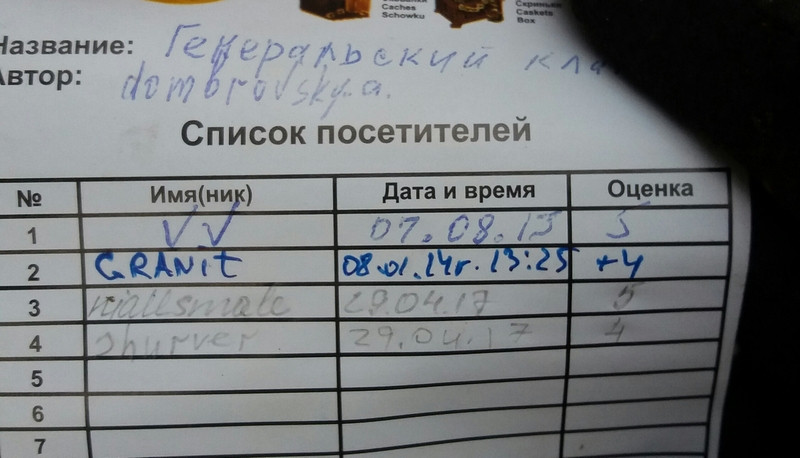 Caches
Schowku
Скриньки
Caskets
Box
Название: Генеральский
Автор: dombrovskya.
Список посетителей
№ Имя(ник) Дата и время Оценка
1 VV 07.08.13 5
2 GRANIT 08.01.14г. 13:25 +4
3 niallsmale 29.04.17 5
4 shurver 29.04.17 4
5
6
7